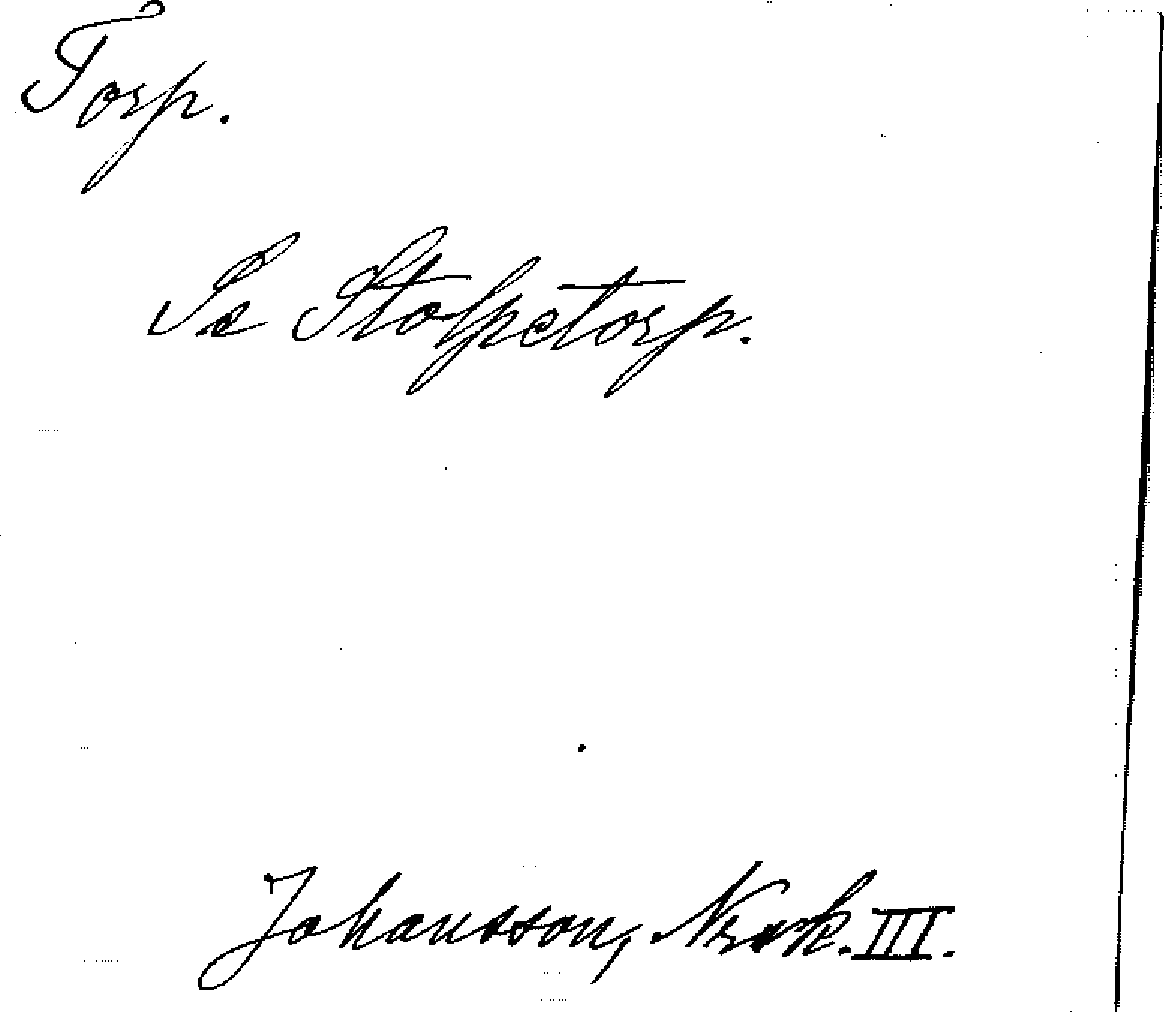 Torp.
Se Stolpetorp.
Johansson, III.